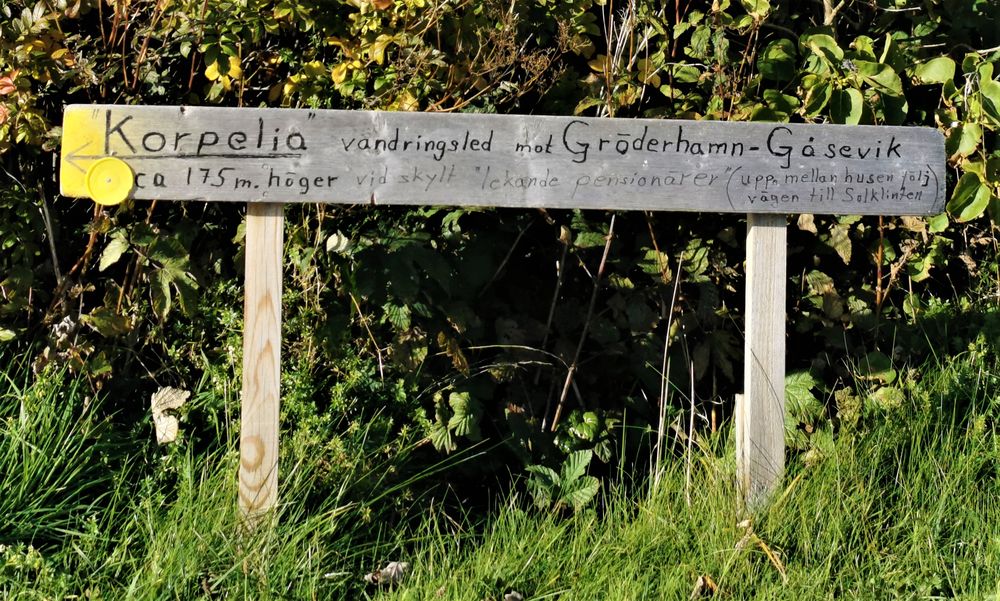 "Korpelia" vandringsled mot Gröderhamn-Gåsevik
ca 175m. höger vid skylt "lekande pensionärer" (upp mellan husen följ
vägen till Solklinten)